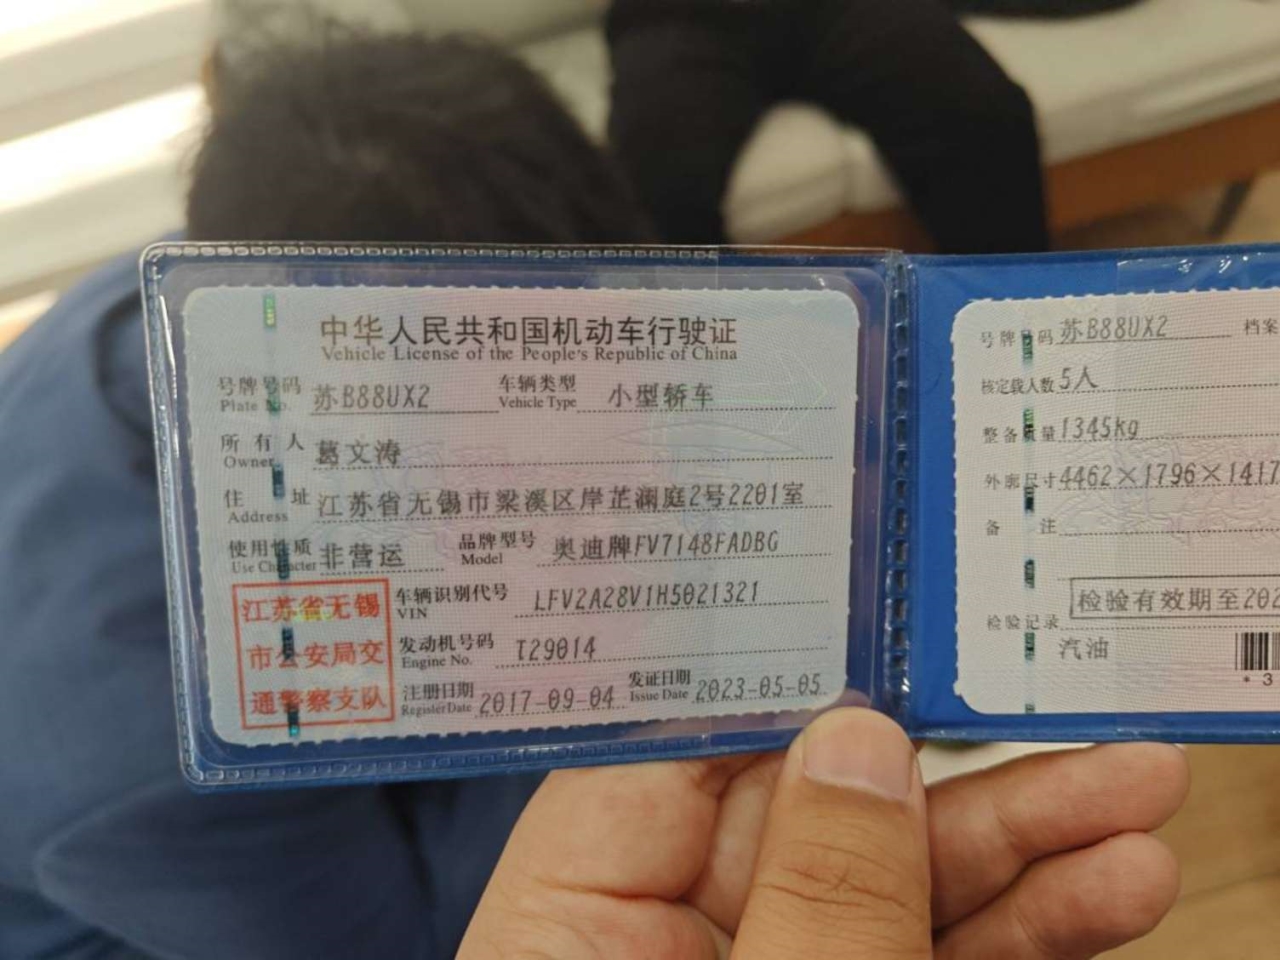 中华人民共和国机动车行驶证
Vehicle License of the People's Republic of China
号牌号码 苏B88UX2 车辆类型 小型轿车
Plate No. Vehicle Type
所有人 葛文涛
Owner
住址 江苏省无锡市梁溪区岸芷澜庭2号2201室
Address
使用性质 非营运 品牌型号 奥迪牌FV7148FADBG
Use Character Model
江苏省无锡
市公安局交
通警察支队
车辆识别代号 LFV2A28V1H5021321
VIN
发动机号码 T29014
Engine No.
注册日期 2017-09-04 发证日期 2023-05-05
Register Date Issue Date
号牌号码 苏B88UX2 档案
核定载人数 5人
整备质量 1345kg
外廓尺寸 4462×1796×1417
备注
检验有效期至202
检验记录
汽油
* 3